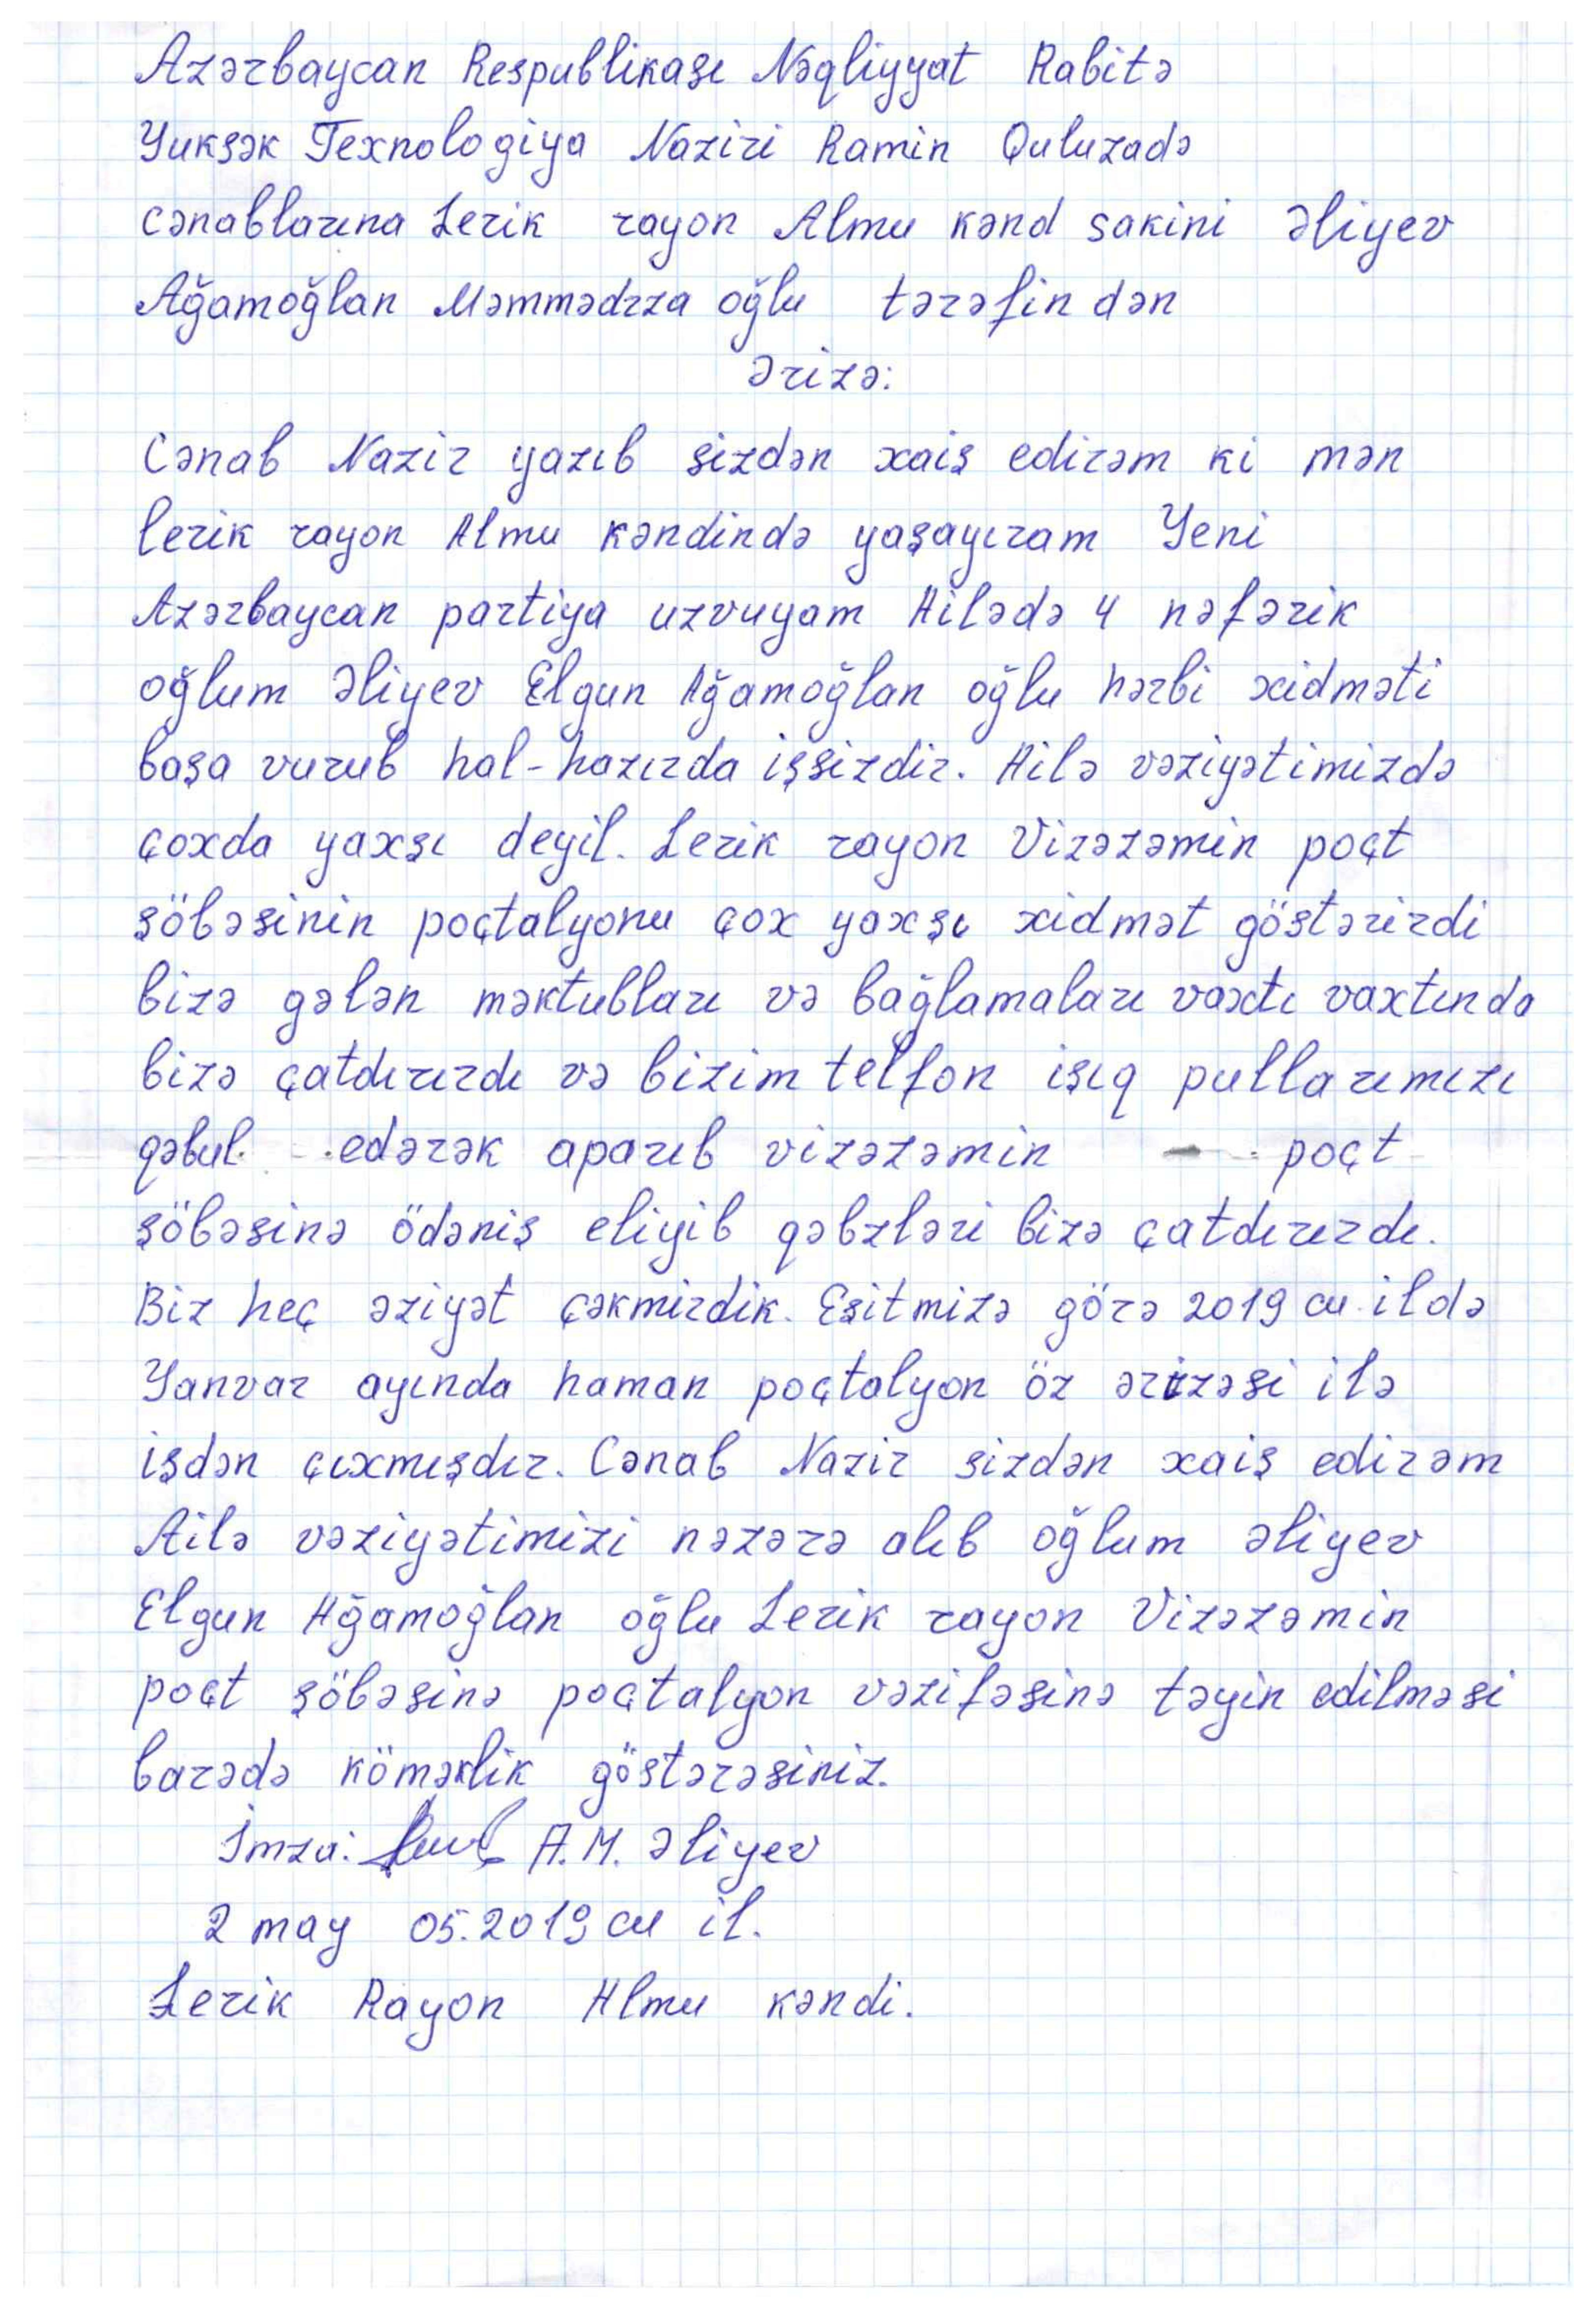 Azərbaycan Respublikası Nəqliyyat Rabitə
Yuksək Texnologiya Naziri Ramin Quluzadə
cənablarına Lerik rayon Almu kənd sakini Əliyev
Ağamoğlan Məmmədrza oğlu tərəfin dən
Ərizə:
Cənab Nazir yazıb sizdən xais edirəm ki mən
lerik rayon Almu kəndində yaşayıram Yeni
Azərbaycan partiya uzvuyam Ailədə 4 nəfərik
oğlum Əliyev Elgun Ağamoğlan oğlu hərbi xidməti
başa vurub hal-hazırda işsizdir. Ailə vəziyətimizdə
çoxda yaxşı deyil. Lerik rayon Vizəzəmin poçt
şöbəsinin poçtalyonu çox yaxşı xidmət göstərirdi
bizə gələn məktubları və bağlamaları vaxtı vaxtında
bizə çatdırırdı və bizim telfon işıq pullarımızı
qəbul edərək aparıb vizəzəmin poçt
şöbəsinə ödəniş eliyib qəbzləri bizə çatdırırdı.
Biz heç əziyət çəkmirdik. Eşitmizə görə 2019 cu ildə
Yanvar ayında haman poçtalyon öz ərizəsi ilə
işdən çıxmışdır. Cənab Nazir sizdən xaiş edirəm
Ailə vəziyətimizi nəzərə alıb oğlum əliyev
Elgun Ağamoğlan oğlu Lerik rayon Vizəzəmin
poçt şöbəsinə poçtalyon vəzifəsinə təyin edilməsi
barədə köməklik göstərəsiniz.
İmza: A.M. Əliyev
2 may 05.2019 cu il.
Lerik Rayon Almu kəndi.